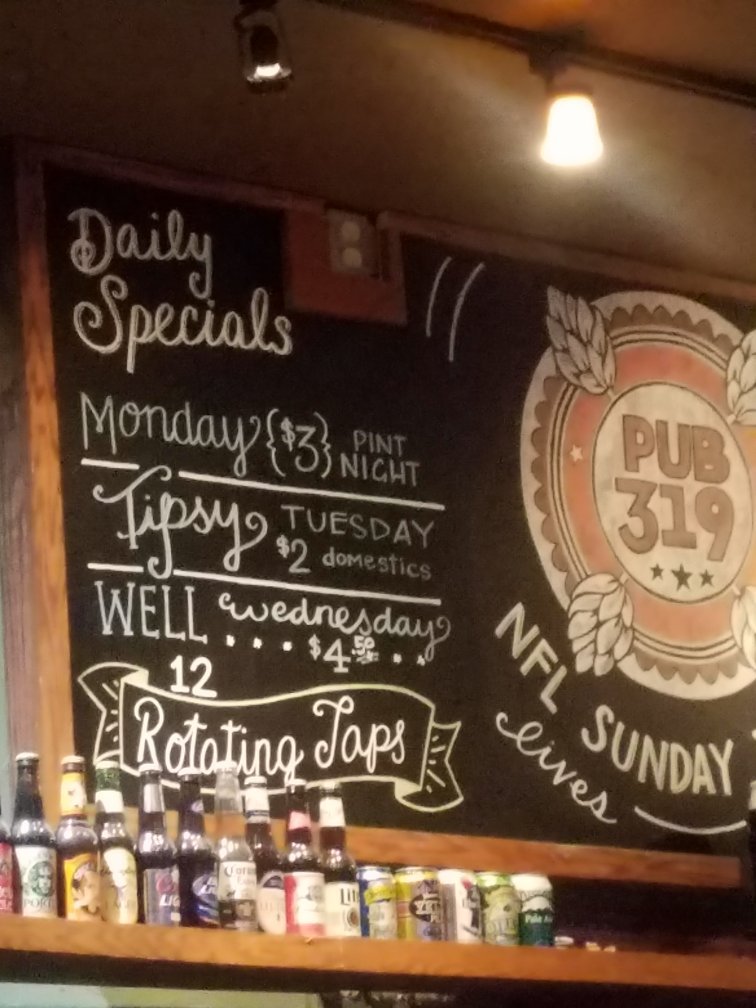 Daily
Specials
Monday {$3} PINT
NIGHT
Tipsy TUESDAY
$2 domestics
WELL wednesday
$4.50
12
Rotating Taps
PUB
319
NFL SUNDAY
lives
Corona
LIGHT
Lite
Pale Ale